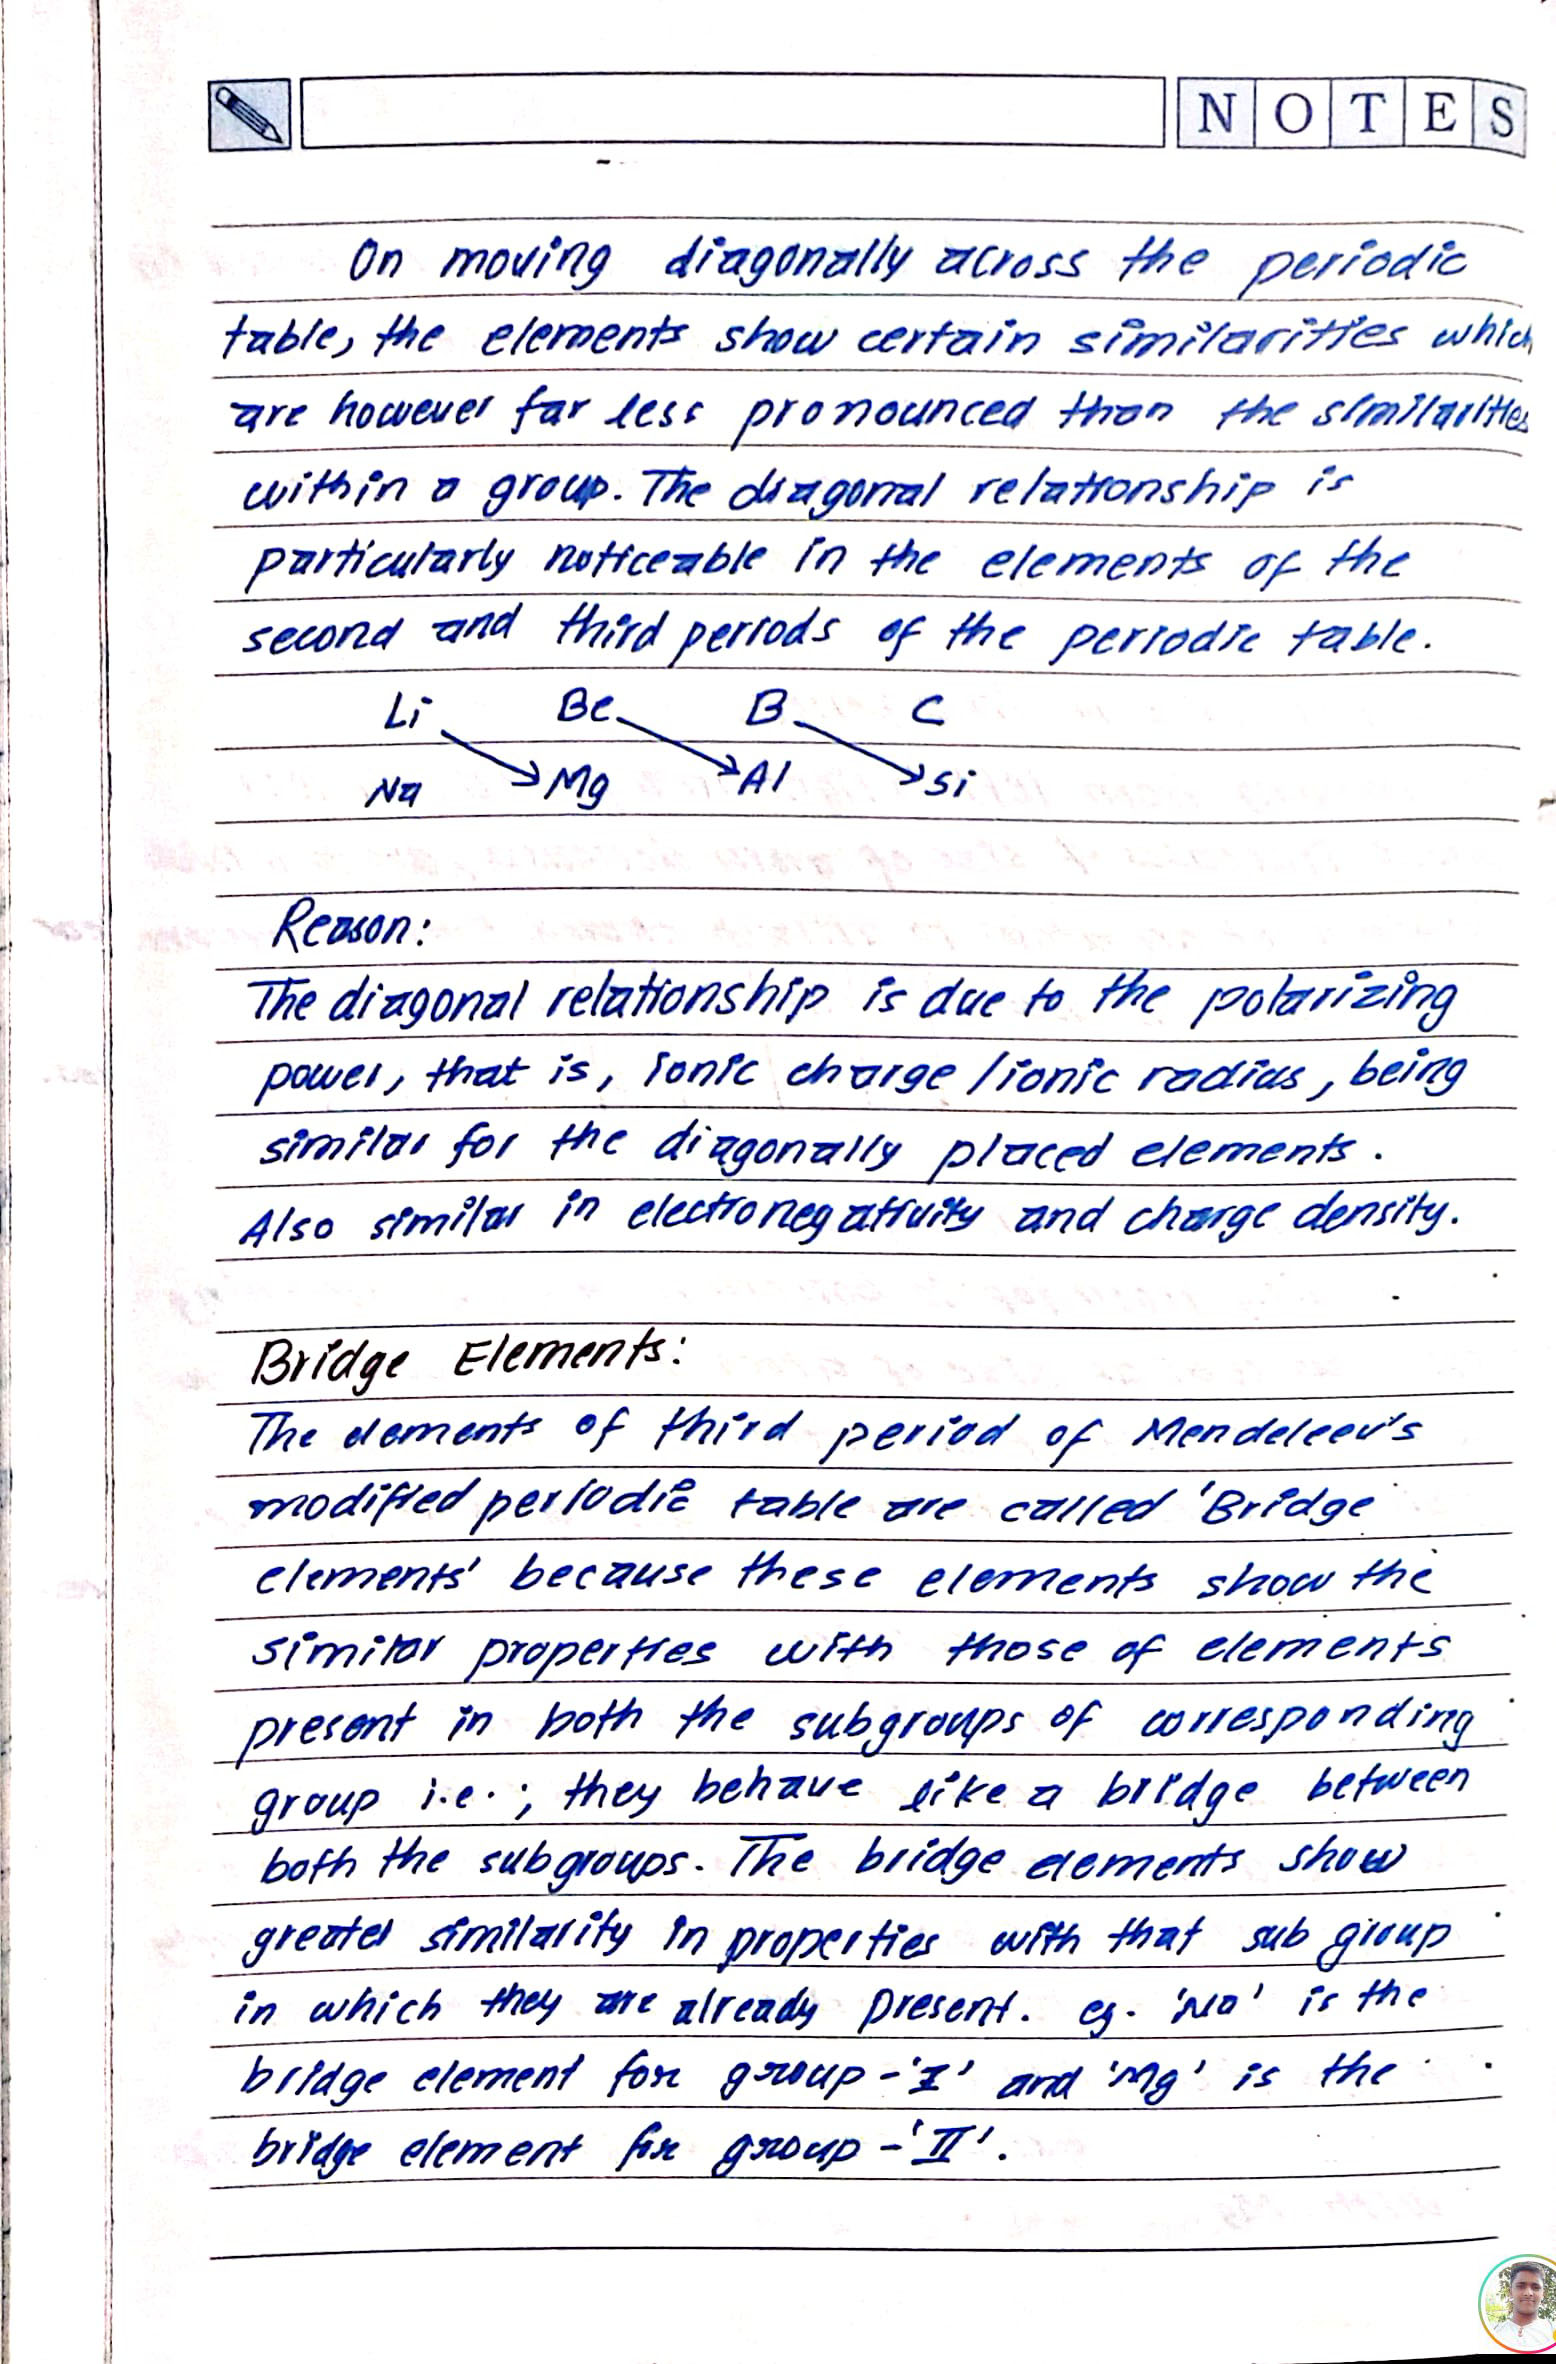 NOTES
On moving diagonally across the periodic
table, the elements show certain similarities which
are however far less pronounced than the similarities
within a group. The diagonal relationship is
particularly noticeable in the elements of the
second and third periods of the periodic table.
Li Be B C
Na Mg Al Si
Reason:
The diagonal relationship is due to the polarizing
power, that is, ionic charge / ionic radius, being
similar for the diagonally placed elements.
Also similar in electronegativity and charge density.
Bridge Elements:
The elements of third period of Mendeleev's
modified periodic table are called 'Bridge
elements' because these elements show the
similar properties with those of elements
present in both the subgroups of corresponding
group i.e.; they behave like a bridge between
both the subgroups. The bridge elements show
greater similarity in properties with that sub group
in which they are already present. eg. 'Na' is the
bridge element for group-'I' and 'Mg' is the
bridge element for group-'II'.